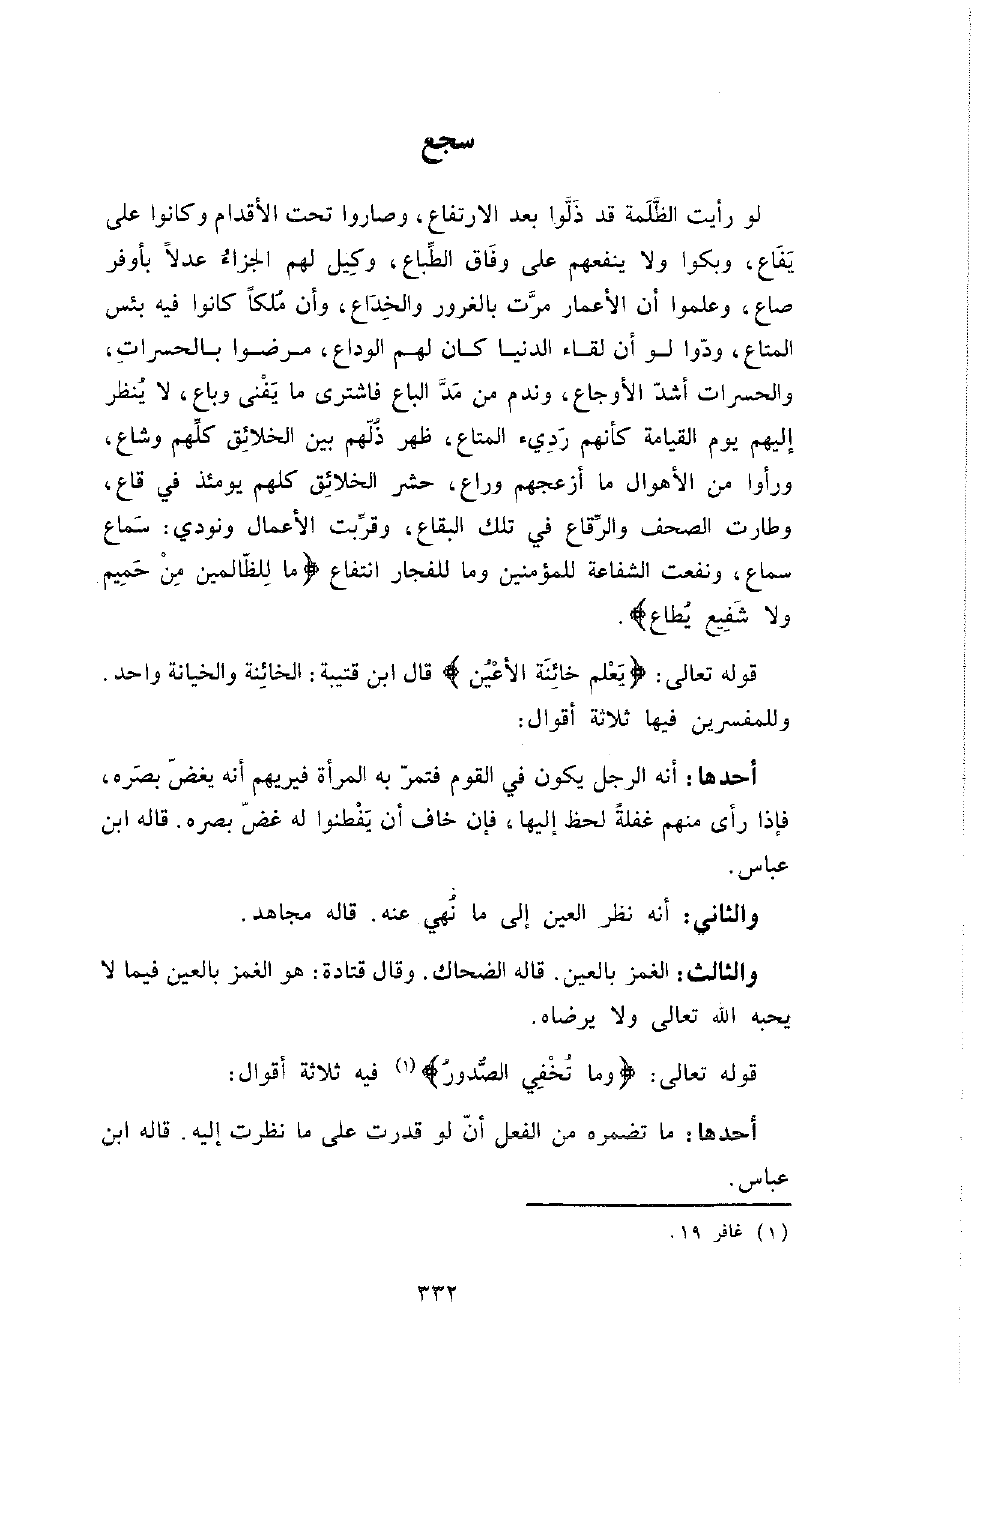 سجع
لو رأيت الظَّلَمة قد ذَلَّوا بعد الارتفاع، وصاروا تحت الأقدام وكانوا على
يَفَاع، وبكوا ولا ينفعهم على وفَاق الطِّباع، وكِيل لهم الجزاءُ عدلاً بأوفر
صاع، وعلموا أن الأعمار مرَّت بالغرور والخِدَاع، وأن مُلكاً كانوا فيه بئس
المتاع، ودّوا لو أن لقاء الدنيا كان لهم الوداع، مرضوا بالحسراتِ،
والحسرات أشدّ الأوجاع، وندم من مَدَّ الباع فاشترى ما يَفْنى وباع، لا يُنظر
إليهم يوم القيامة كأنهم رَدِيء المتاع، ظهر ذُلّهم بين الخلائِق كلِّهم وشاع،
ورأوا من الأهوال ما أزعجهم وراع، حشر الخلائِق كلهم يومئذ في قاع،
وطارت الصحف والرِّقاع في تلك البقاع، وقرِّبت الأعمال ونودي: سَماع
سماع، ونفعت الشفاعة للمؤمنين وما للفجار انتفاع ﴿ما لِلظّالمين مِنْ حَمِيم
ولا شَفِيع يُطاع﴾.
قوله تعالى: ﴿يَعْلم خائِنَة الأعْيُن﴾ قال ابن قتيبة: الخائِنة والخيانة واحد.
وللمفسرين فيها ثلاثة أقوال:
أحدها: أنه الرجل يكون في القوم فتمرّ به المرأة فيريهم أنه يغضّ بصَره،
فإذا رأى منهم غفلةً لحظ إليها، فإن خاف أن يَفْطنوا له غضّ بصره. قاله ابن
عباس.
والثاني: أنه نظر العين إلى ما نُهي عنه. قاله مجاهد.
والثالث: الغمز بالعين. قاله الضحاك. وقال قتادة: هو الغمز بالعين فيما لا
يحبه الله تعالى ولا يرضاه.
قوله تعالى: ﴿وما تُخْفِي الصُّدورُ﴾(١) فيه ثلاثة أقوال:
أحدها: ما تضمره من الفعل أنّ لو قدرت على ما نظرت إليه. قاله ابن
عباس.
(١) غافر ١٩.
٣٣٢